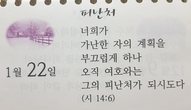 피난처
너희가
가난한 자의 계획을
부끄럽게 하나
오직 여호와는
그의 피난처가 되시도다
(시 14:6)
1월 22일